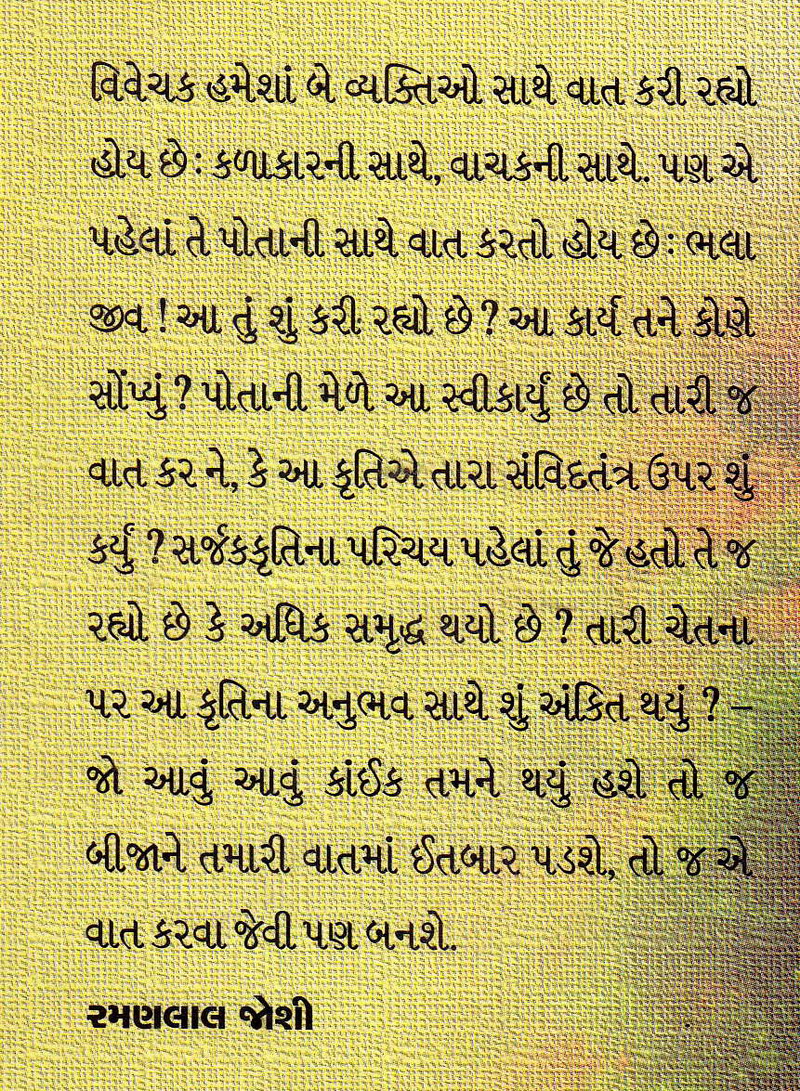 વિવેચક હમેશાં બે વ્યક્તિઓ સાથે વાત કરી રહ્યો
હોય છે : કળાકારની સાથે, વાચકની સાથે. પણ એ
પહેલાં તે પોતાની સાથે વાત કરતો હોય છે : ભલા
જીવ ! આ તું શું કરી રહ્યો છે ? આ કાર્ય તને કોણે
સોંપ્યું ? પોતાની મેળે આ સ્વીકાર્યું છે તો તારી જ
વાત કર ને, કે આ કૃતિએ તારા સંવિદતંત્ર ઉપર શું
કર્યું ? સર્જકકૃતિના પરિચય પહેલાં તું જે હતો તે જ
રહ્યો છે કે અધિક સમૃદ્ધ થયો છે ? તારી ચેતના
પર આ કૃતિના અનુભવ સાથે શું અંકિત થયું ? –
જો આવું આવું કાંઈક તમને થયું હશે તો જ
બીજાને તમારી વાતમાં ઈતબાર પડશે, તો જ એ
વાત કરવા જેવી પણ બનશે.
રમણલાલ જોશી